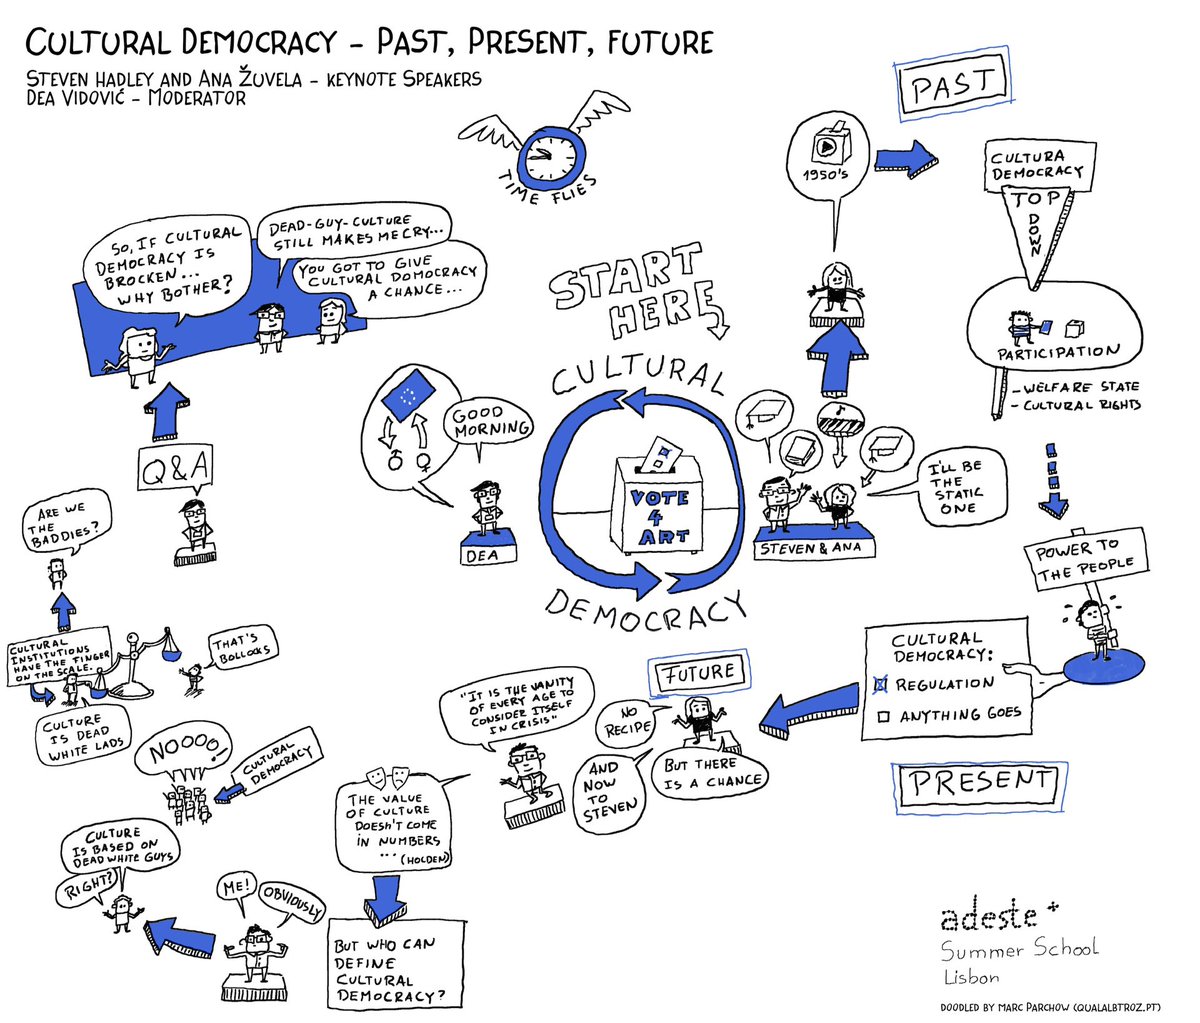 CULTURAL DEMOCRACY – PAST, PRESENT, FUTURE
STEVEN HADLEY AND ANA ŽUVELA – KEYNOTE SPEAKERS
DEA VIDOVIĆ – MODERATOR
TIME FLIES
START
HERE
CULTURAL
DEMOCRACY
VOTE
4
ART
GOOD
MORNING
DEA
STEVEN & ANA
I'LL BE
THE
STATIC
ONE
1950'S
PAST
CULTURA
DEMOCRACY
TOP
DOWN
PARTICIPATION
- WELFARE STATE
- CULTURAL RIGHTS
POWER TO
THE PEOPLE
CULTURAL
DEMOCRACY:
REGULATION
ANYTHING GOES
PRESENT
FUTURE
NO
RECIPE
BUT THERE
IS A CHANCE
AND
NOW
TO
STEVEN
"IT IS THE VANITY
OF EVERY AGE TO
CONSIDER ITSELF
IN CRISIS"
THE VALUE
OF CULTURE
DOESN'T COME
IN NUMBERS
... (HOLDEN)
BUT WHO CAN
DEFINE
CULTURAL
DEMOCRACY?
ME!
OBVIOUSLY
CULTURE
IS BASED ON
DEAD WHITE GUYS
RIGHT?
CULTURAL
DEMOCRACY
NOOOO!
CULTURE
IS DEAD
WHITE LADS
CULTURAL
INSTITUTIONS
HAVE THE FINGER
ON THE SCALE.
THAT'S
BOLLOCKS
ARE WE
THE
BADDIES?
Q&A
SO, IF CULTURAL
DEMOCRACY IS
BROCKEN...
WHY BOTHER?
DEAD-GUY-CULTURE
STILL MAKES ME CRY...
YOU GOT TO GIVE
CULTURAL DOMOCRACY
A CHANCE...
adeste+
Summer School
Lisbon
DOODLED BY MARC PARCHOW (QUALALBTROZ.PT)